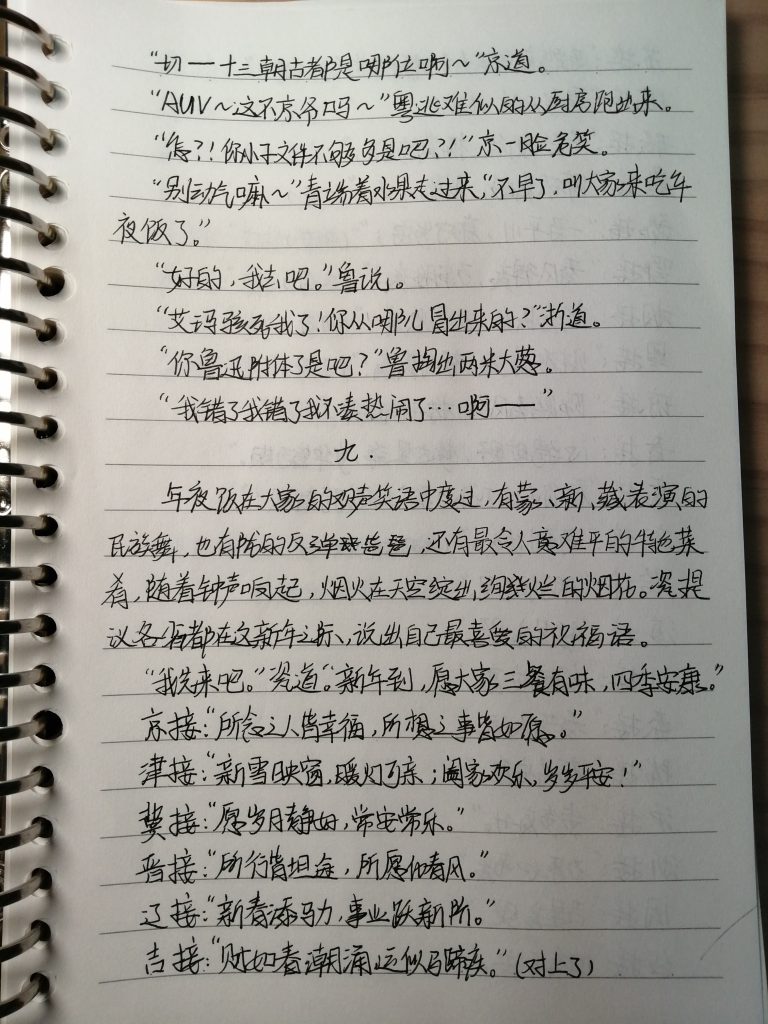 “切——十三朝古都是哪位啊～”京道。
“AUV～这不京爷吗～”粤逃难似的从厨房跑出来。
“怎？！你小子文件不够多是吧？！”京一脸危笑。
“别动气嘛～”青端着水果走过来，“不早了，叫大家来吃年
夜饭了。”
“好的，我去吧。”鲁说。
“艾玛孩死我了！你从哪儿冒出来的？”浙道。
“你鲁迅附体了是吧？”鲁掏出两米大葱。
“我错了我错了我不凑热闹了…啊——”
九.
年夜饭在大家的欢声笑语中度过，有蒙、新、藏表演的
民族舞，也有陇的反弹琵琶，还有最令人意难平的特色菜
肴，随着钟声响起，烟火在天空绽出绚烂的烟花。瓷提
议各省都在这新年之际、说出自己最喜爱的祝福语。
“我先来吧。”瓷道。“新年到，愿大家三餐有味，四季安康。”
京接：“所念之人皆幸福，所想之事皆如愿。”
津接：“新雪映窗，暖灯可亲；阖家欢乐，岁岁平安！”
冀接：“愿岁月静好，常安常乐。”
晋接：“所行皆坦途，所愿似春风。”
辽接：“新春添马力，事业跃新阶。”
吉接：“财如春潮涌，运似马蹄疾。”（对上了）